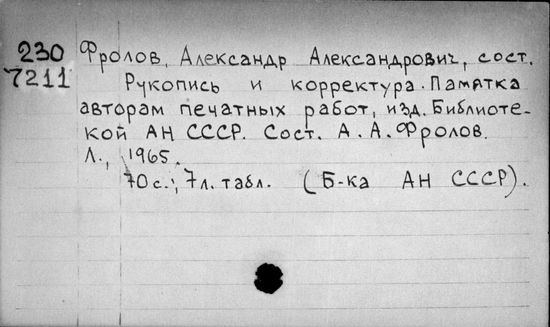 230 Фролов, Александр Александрович, сост.
7211 Рукопись и корректура. Памятка
авторам печатных работ, изд. Библиоте-
кой АН СССР. Сост. А. А. Фролов.
Л., 1965.
70 с.; 7 л. табл. (Б-ка АН СССР).